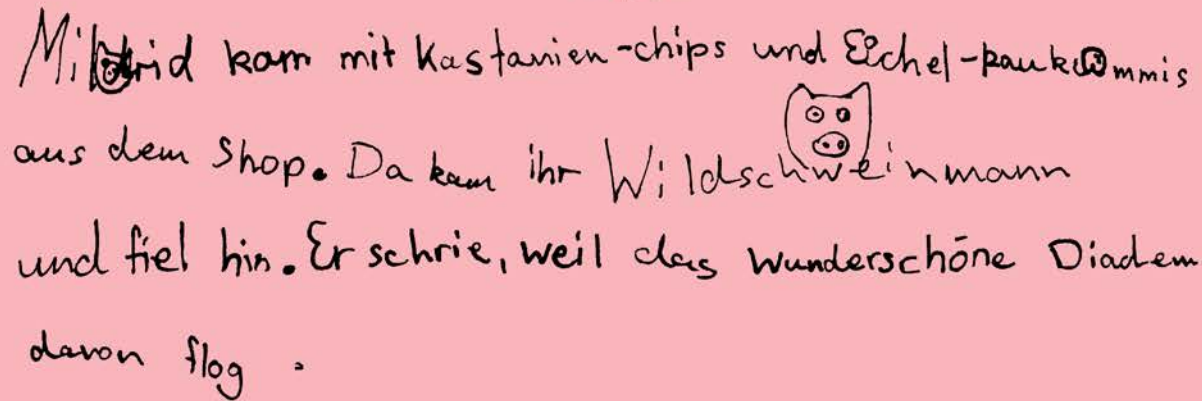 Mildrid kam mit Kastanien-chips und Eichel-paukummis
aus dem Shop. Da kam ihr Wildschweinmann
und fiel hin. Er schrie, weil das wunderschöne Diadem
davon flog.